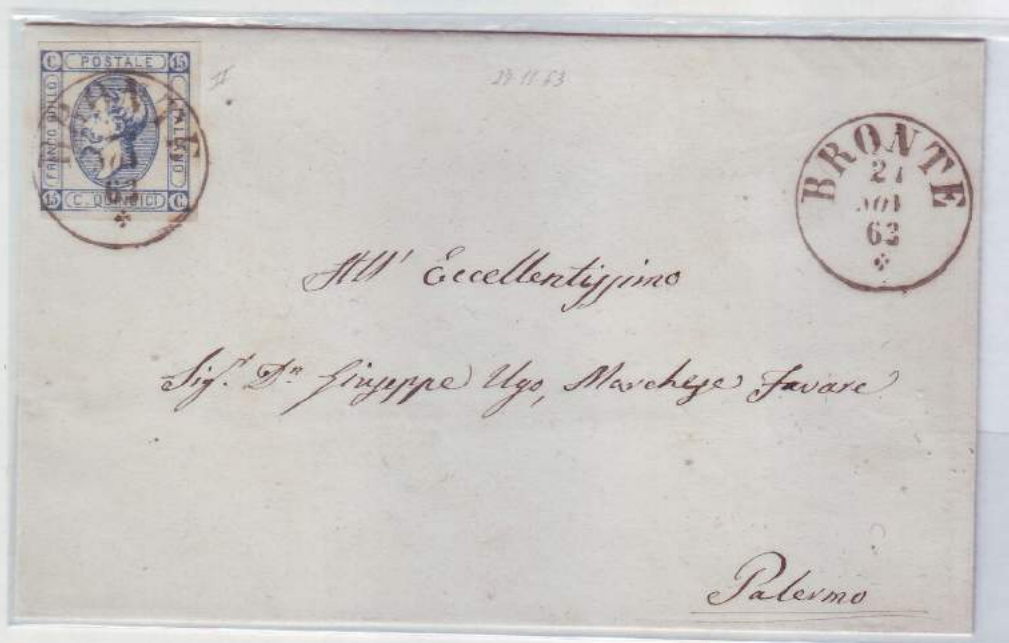 C POSTALE 15
FRANCO BOLLO
ITALIANO
15 C. QUINDICI C.
BRONTE
62
II
BRONTE
21
NOV
62
All' Eccellentissimo
Sigr. Dn Giuseppe Ugo, Marchese Favare
Palermo